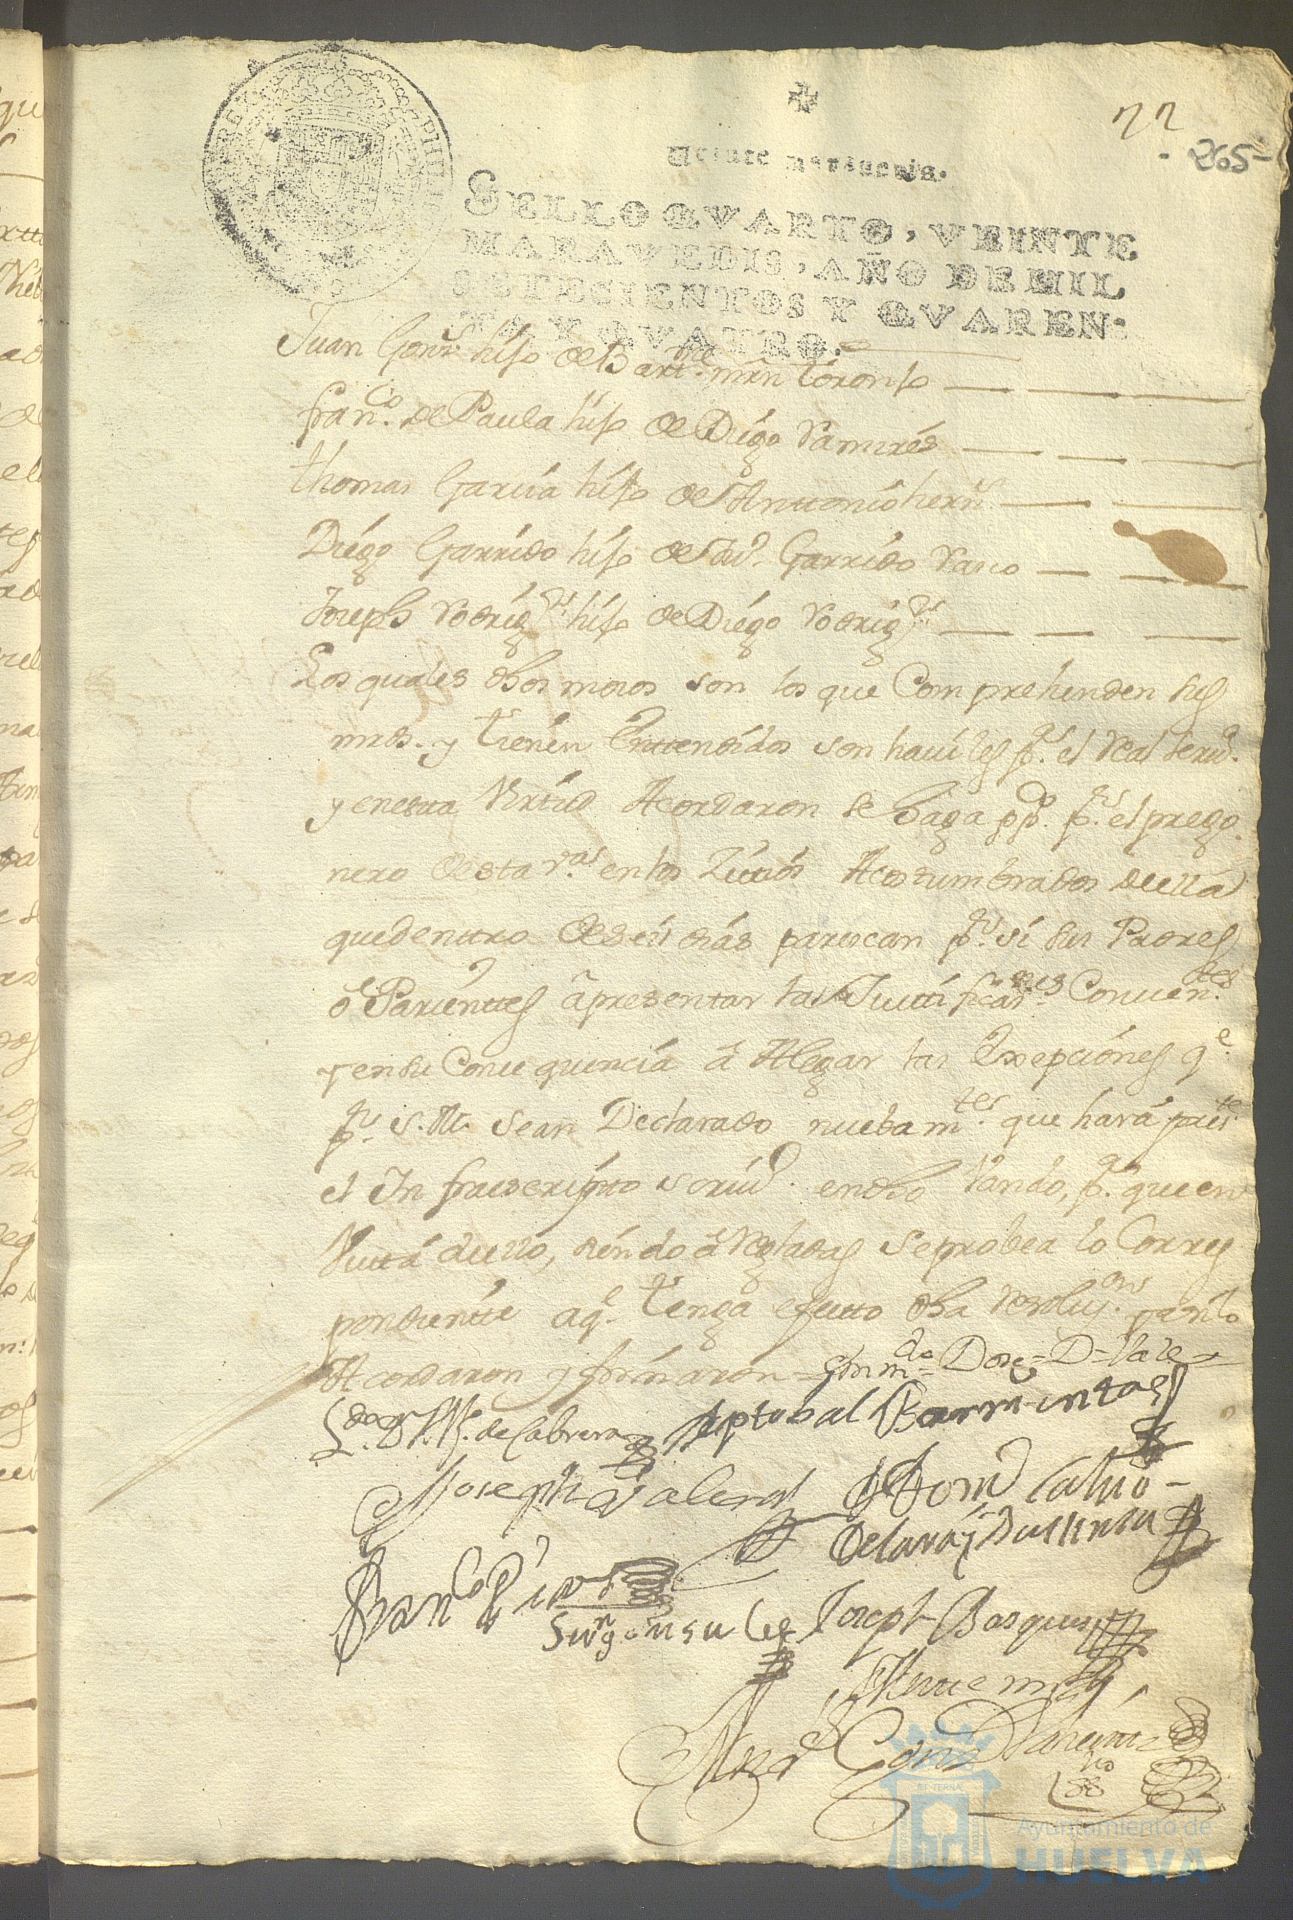 22
265
Veinte maravedis.
SELLO QVARTO, VEINTE
MARAVEDIS, AÑO DE MIL
SETECIENTOS Y QVAREN-
TA Y QVATRO.
Juan Gonz. hijo de Bartme. mrn toronjo
franco. de Paula hijo de Diego Ramires
thomas Garcia hijo de Anttonio hern
Diego Garrido hijo de Garrido Vasco
Joseph Rodrigs hijo de Diego Rodrigs
Los quales dhos mosos son los que Comprehenden sus
mrds. y tienen Enttendidos son haviles pa. el Real serv.
y en esta Virtud Acordaron se haga pp. pr. el prego
nero de esta va. en los Zitios Acostumbrados de ella
que denttro de seis dias parescan pr. si sus Padres
o Parienttes a presentar las Justtificasnes Conventes
y en su Consequencia a Alegar las Exepciones qe.
pr. S.M. sean Declarado nuebamte. que hará prest.
el Infrascripto scriv. en dho Vando, pa. que en
Vistta de ello, siendo a Regladas se probea lo Corres
pondientte a qe. tenga efectto dha Resoluzn. y asi lo
Acordaron y firmaron = Enmdo = Dose = D = Vale
de Cabrera Xptobal Barrientos
Joseph Dom Calvio
de lara y Bustten
Franco
Jun gonsales Joseph Basques
Antte mi
Gonz
Ayuntamiento de
HUELVA